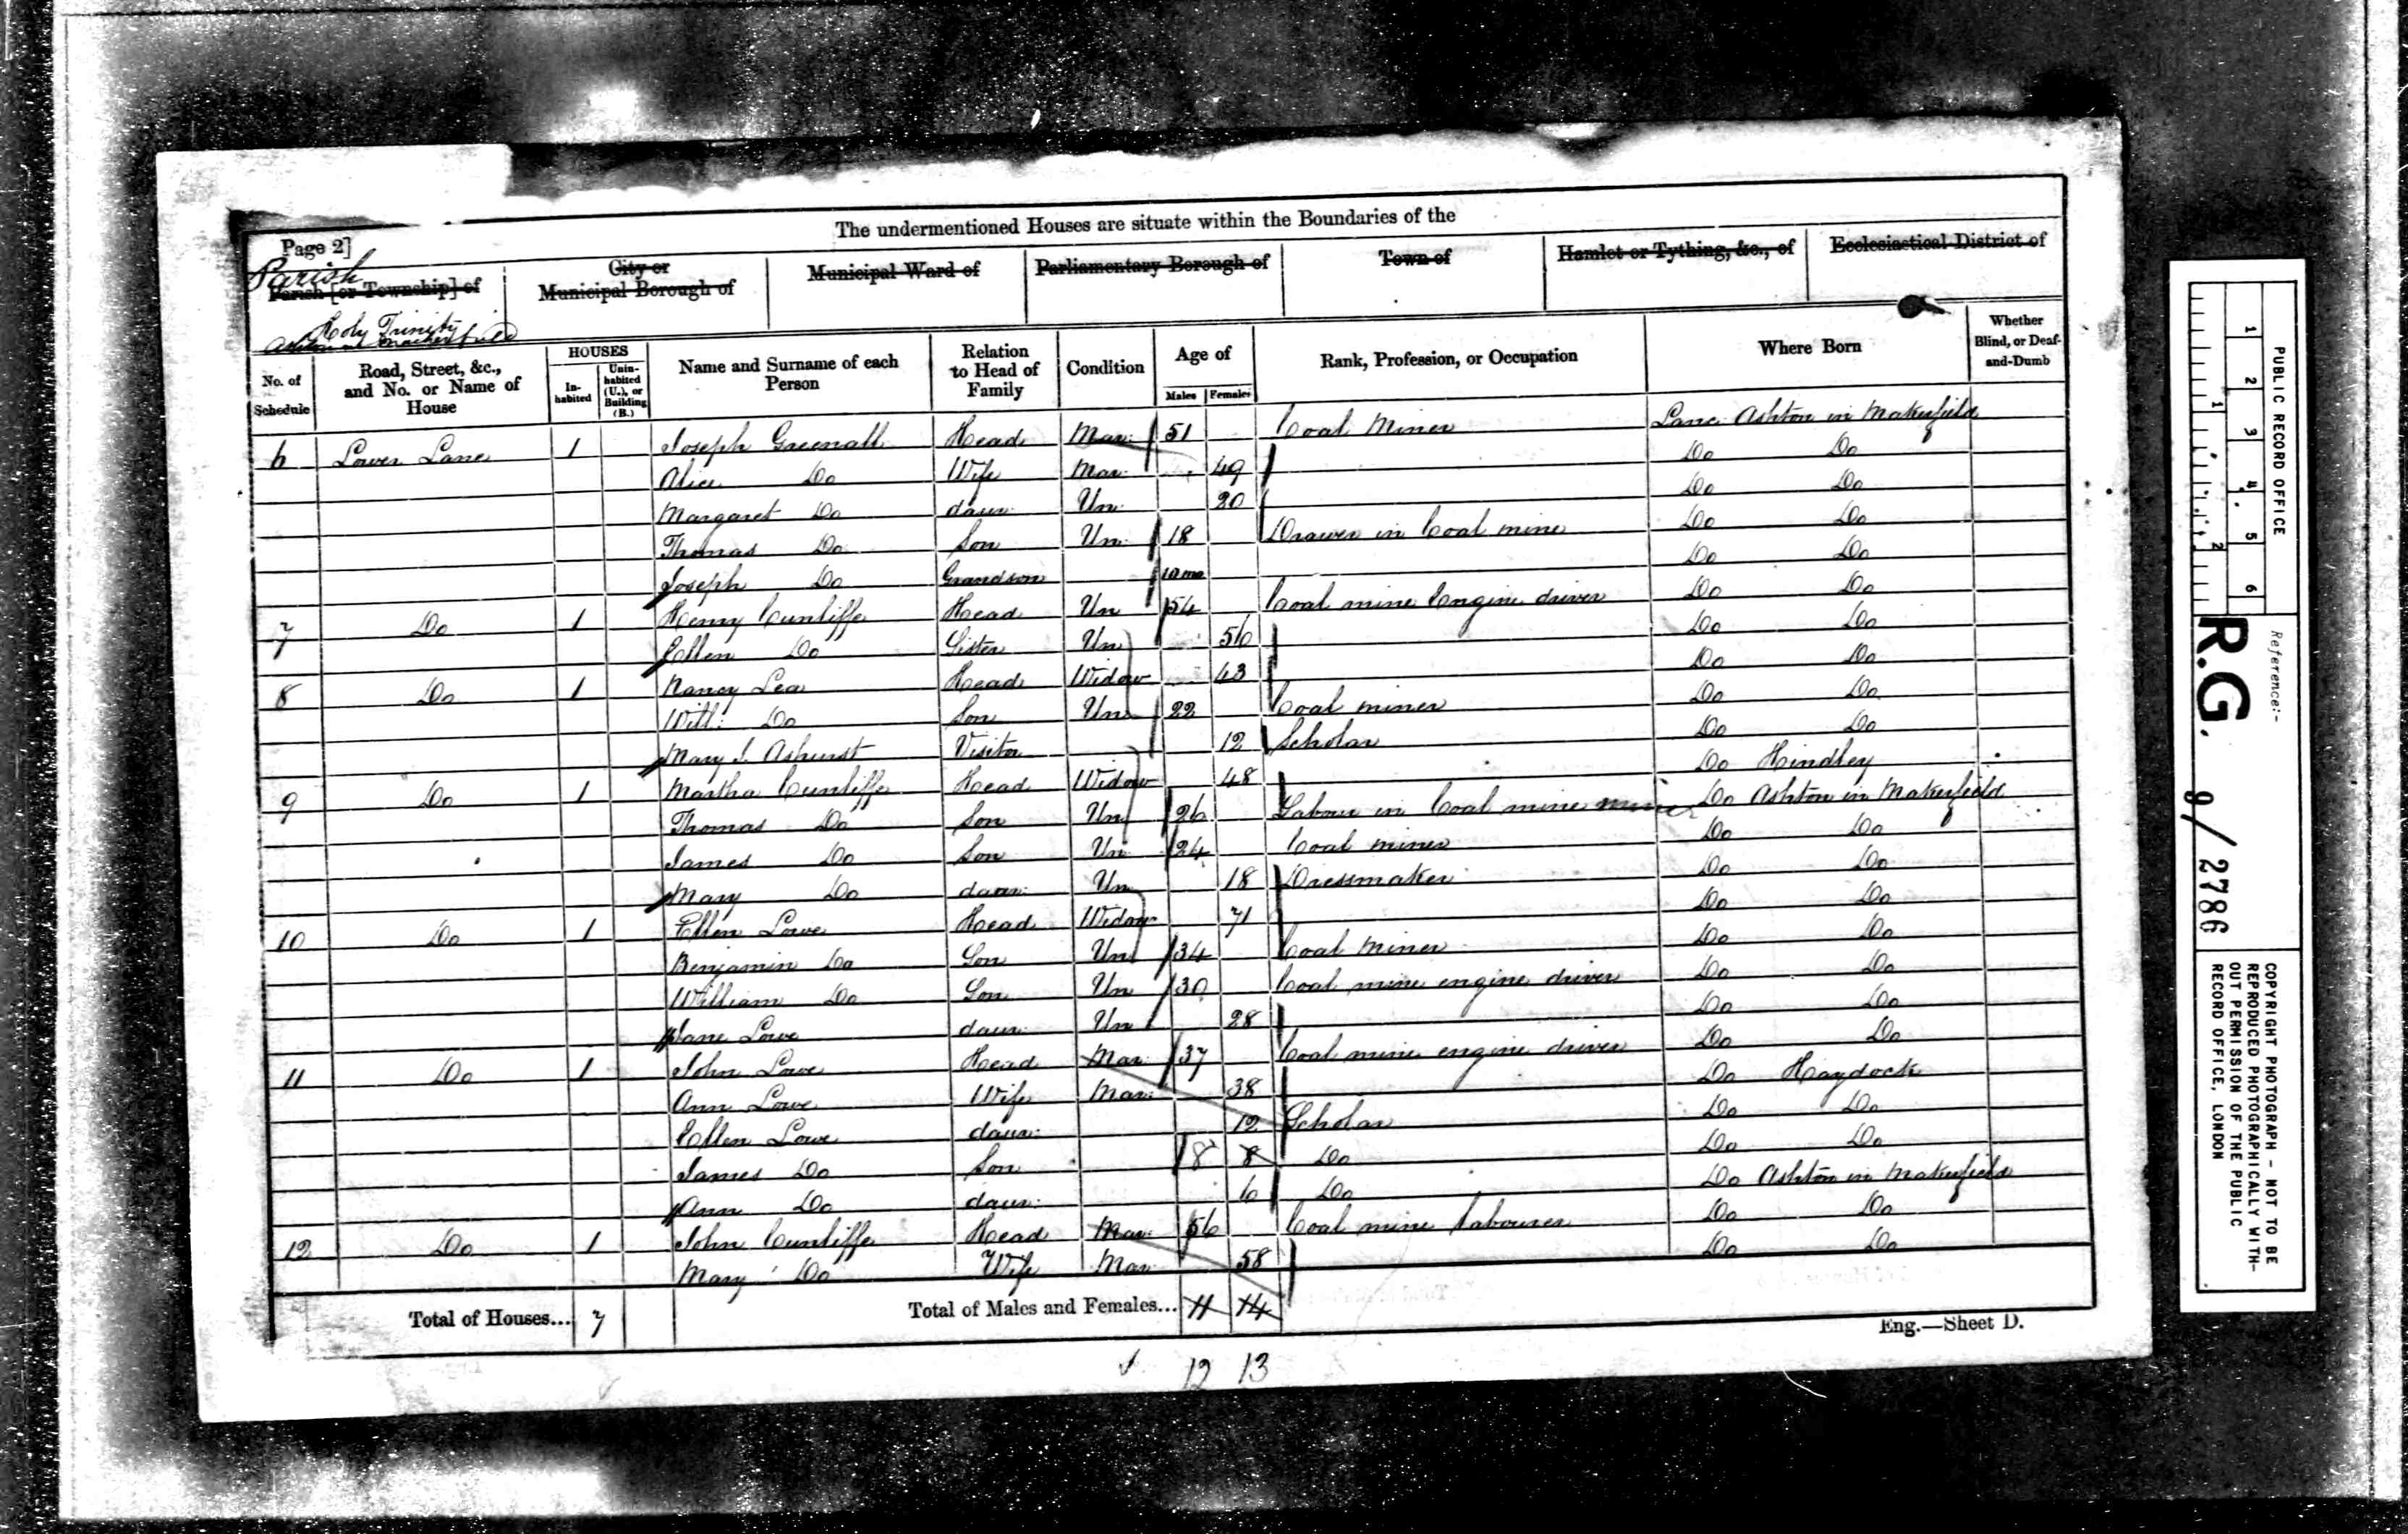 The undermentioned Houses are situate within the Boundaries of the
Page 2]
Parish
Parish [or Township] of
City or Municipal Borough of
Municipal Ward of
Parliamentary Borough of
Town of
Hamlet or Tything, &c., of
Ecclesiastical District of
Holy Trinity
Ashton in Makerfield
No. of Schedule
Road, Street, &c., and No. or Name of House
HOUSES
In-habited
Unin-habited (U.), or Building (B.)
Name and Surname of each Person
Relation to Head of Family
Condition
Age of
Males
Females
Rank, Profession, or Occupation
Where Born
Whether Blind, or Deaf-and-Dumb
6 Lower Lane 1 Joseph Greenall Head Mar: 51 Coal Miner Lanc Ashton in Makerfield
Alice Do Wife Mar 49 Do Do
Margaret Do daur: Un: 20 Do Do
Thomas Do Son Un: 18 Drawer in Coal mine Do Do
Joseph Do Grandson 10 mo Do Do
7 Do 1 Henry Cunliffe Head Un 54 Coal mine Engine driver Do Do
Ellen Do Sister Un 56 Do Do
8 Do 1 Nancy Lea Head Widow 43 Do Do
Will: Do Son Un 22 Coal miner Do Do
Mary J. Ashurst Visitor 12 Scholar Do Do
9 Do 1 Martha Cunliffe Head Widow 48 Do Hindley
Thomas Do Son Un 26 Labour in Coal mine miner Do Ashton in Makerfield
James Do Son Un 24 Coal miner Do Do
Mary Do daur: Un 18 Dressmaker Do Do
10 Do 1 Ellen Lowe Head Widow 71 Do Do
Benjamin Do Son Un 34 Coal Miner Do Do
William Do Son Un 30 Coal mine engine driver Do Do
Jane Lowe daur: Un 28 Do Do
11 Do 1 John Lowe Head Mar: 37 Coal mine engine driver Do Do
Ann Lowe Wife Mar: 38 Do Haydock
Ellen Lowe daur: 12 Scholar Do Do
James Do Son 8 8 Do Do Do
Ann Do daur: 6 Do Do Ashton in Makerfield
12 Do 1 John Cunliffe Head Mar: 56 Coal mine labourer Do Do
Mary Do Wife Mar 58 Do Do
Total of Houses... 7 Total of Males and Females... 11 14
Eng.—Sheet D.
12 13
PUBLIC RECORD OFFICE
1 2 3 4 5 6
1 2
Reference:-
R.G. 9/2786
COPYRIGHT PHOTOGRAPH - NOT TO BE
REPRODUCED PHOTOGRAPHICALLY WITH-
OUT PERMISSION OF THE PUBLIC
RECORD OFFICE, LONDON